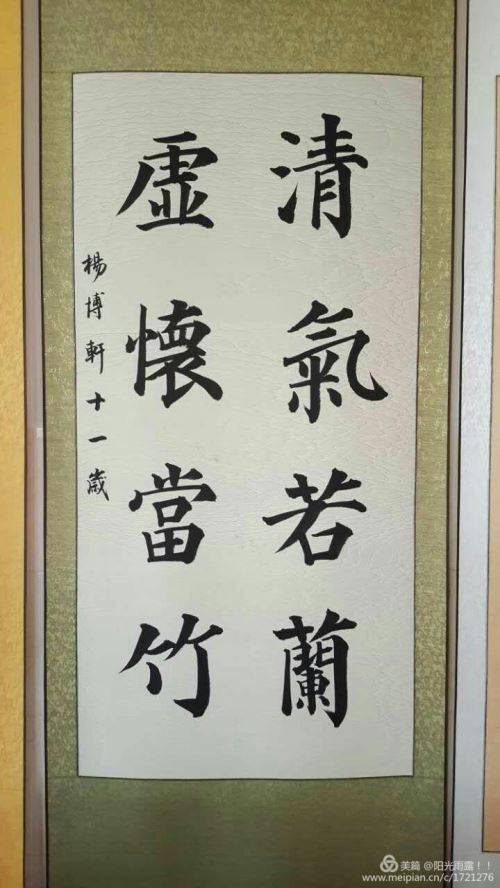 清氣若蘭
虛懷當竹
楊博軒十一歲
美篇 @阳光雨露！！
www.meipian.cn/c/1721276